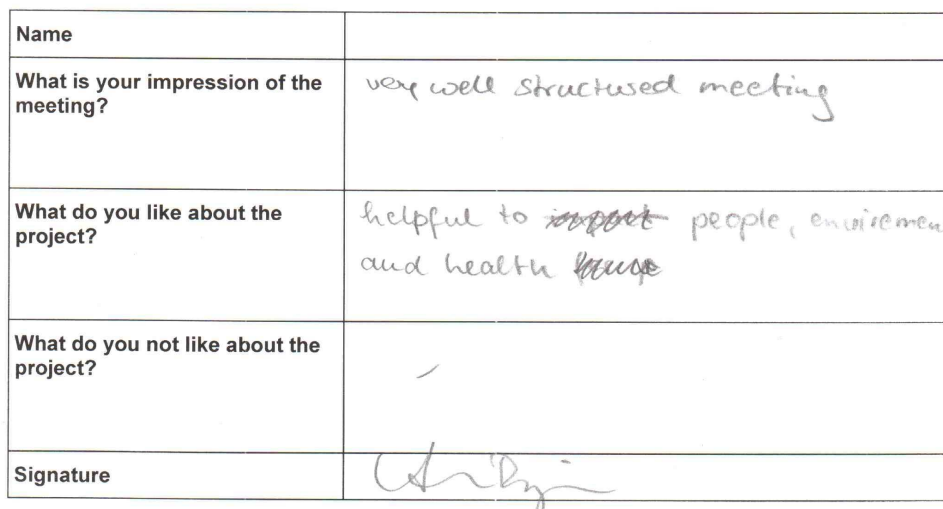 Name
What is your impression of the
meeting?
very well structured meeting
What do you like about the
project?
helpful to people, enviremen
and health
What do you not like about the
project?
Signature